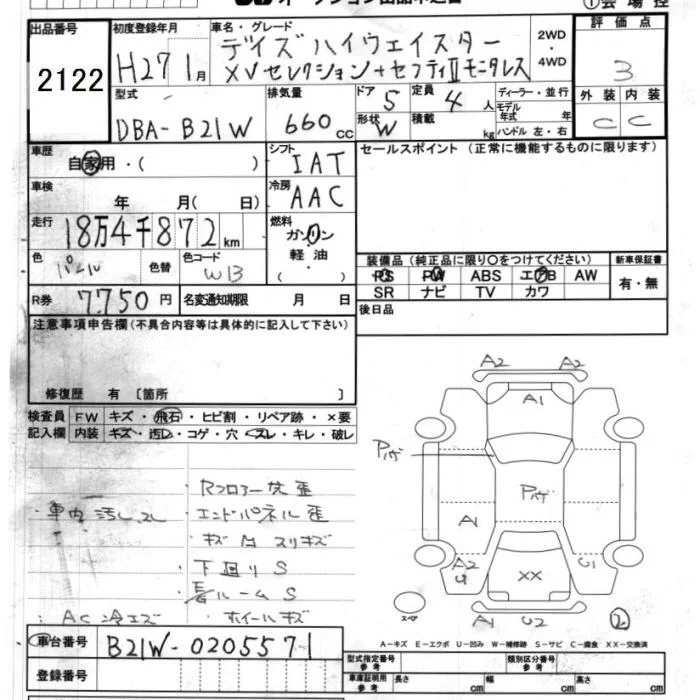 出品番号
2122
初度登録年月
H27 1月
車名・グレード
デイズハイウェイスター
XVセレクション+セフティⅡモニタレス
2WD
・
4WD
評価点
3
外装 内装
C C
型式
DBA-B21W
排気量
660cc
ドア 5
定員 4人
形状 W
積載 kg
ディーラー・並行
モデル年式 年
ハンドル 左・右
車歴
自家用・( )
シフト
IAT
セールスポイント(正常に機能するものに限ります)
車検
年 月( 日)
冷房
AAC
走行
18万4千872km
燃料
ガソリン
・
軽油
色
パール
色替
色コード
W13
装備品(純正品に限り○をつけてください)
PS PW ABS エアB AW
SR ナビ TV カワ
新車保証書
有・無
R券
7750円
名変通知期限 月 日
後日品
注意事項申告欄(不具合内容等は具体的に記入して下さい)
修復歴 有 [箇所 ]
検査員 FW キズ・飛石・ヒビ割・リペア跡・×要
記入欄 内装 キズ・汚レ・コゲ・穴・スレ・キレ・破レ
・エンドパネル歪
・車内汚レ スレ
・下廻りS
・ルームS
・AC冷エズ
・ホイールキズ
A2 A2
A1
Pハゲ
Pハゲ
A1
A2
U
U1
XX
スペア
A1 U2
2
A-キズ E-エクボ U-凹み W-補修跡 S-サビ C-腐食 XX-交換済
車台番号
B21W-0205571
登録番号
型式指定番号
参考
類別区分番号
参考
車庫証明用
参考
長さ cm 幅 cm 高さ cm